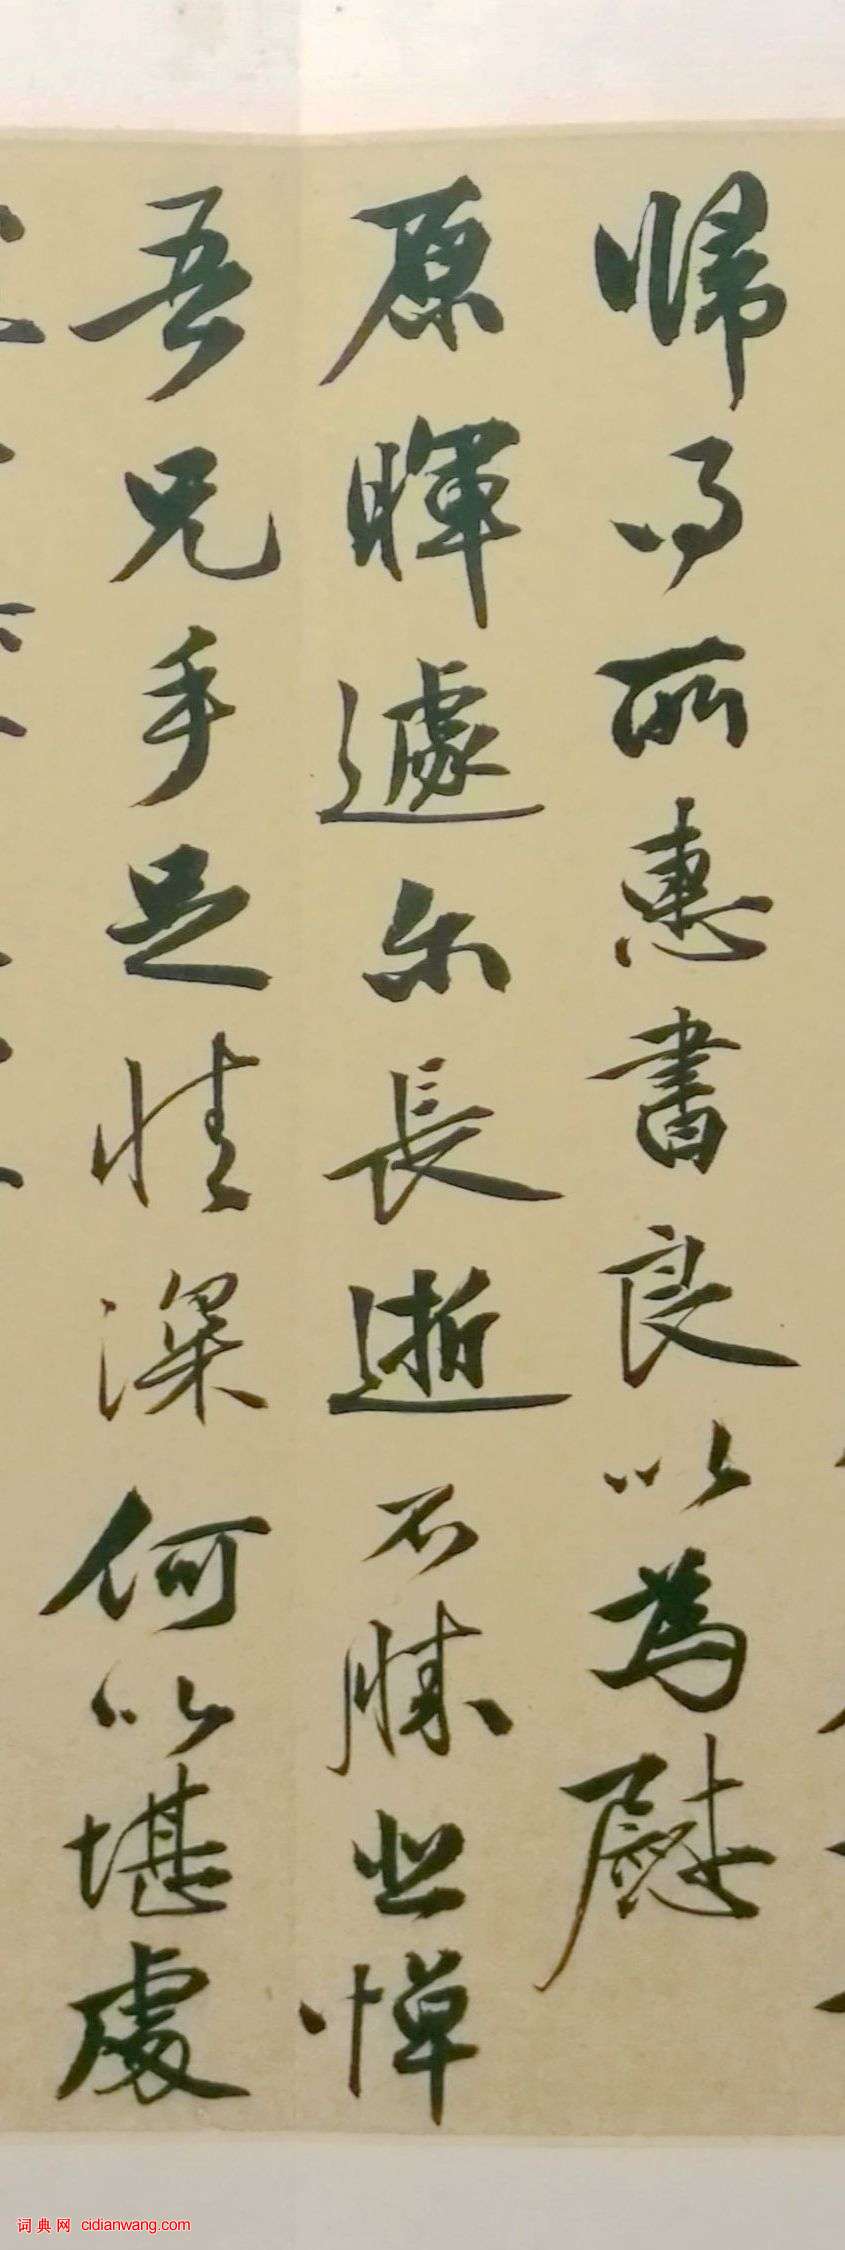 歸得所惠書良以為慰
原暉遽尔長逝不勝悲惮
吾兄手足情深何以堪處
词典网 cidianwang.com